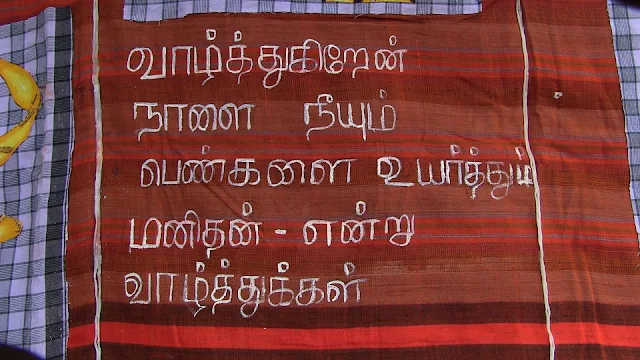 வாழ்த்துகிறேன்
நாளை நீயும்
பெண்களை உயர்த்தும்
மனிதன் - என்று
வாழ்த்துக்கள்